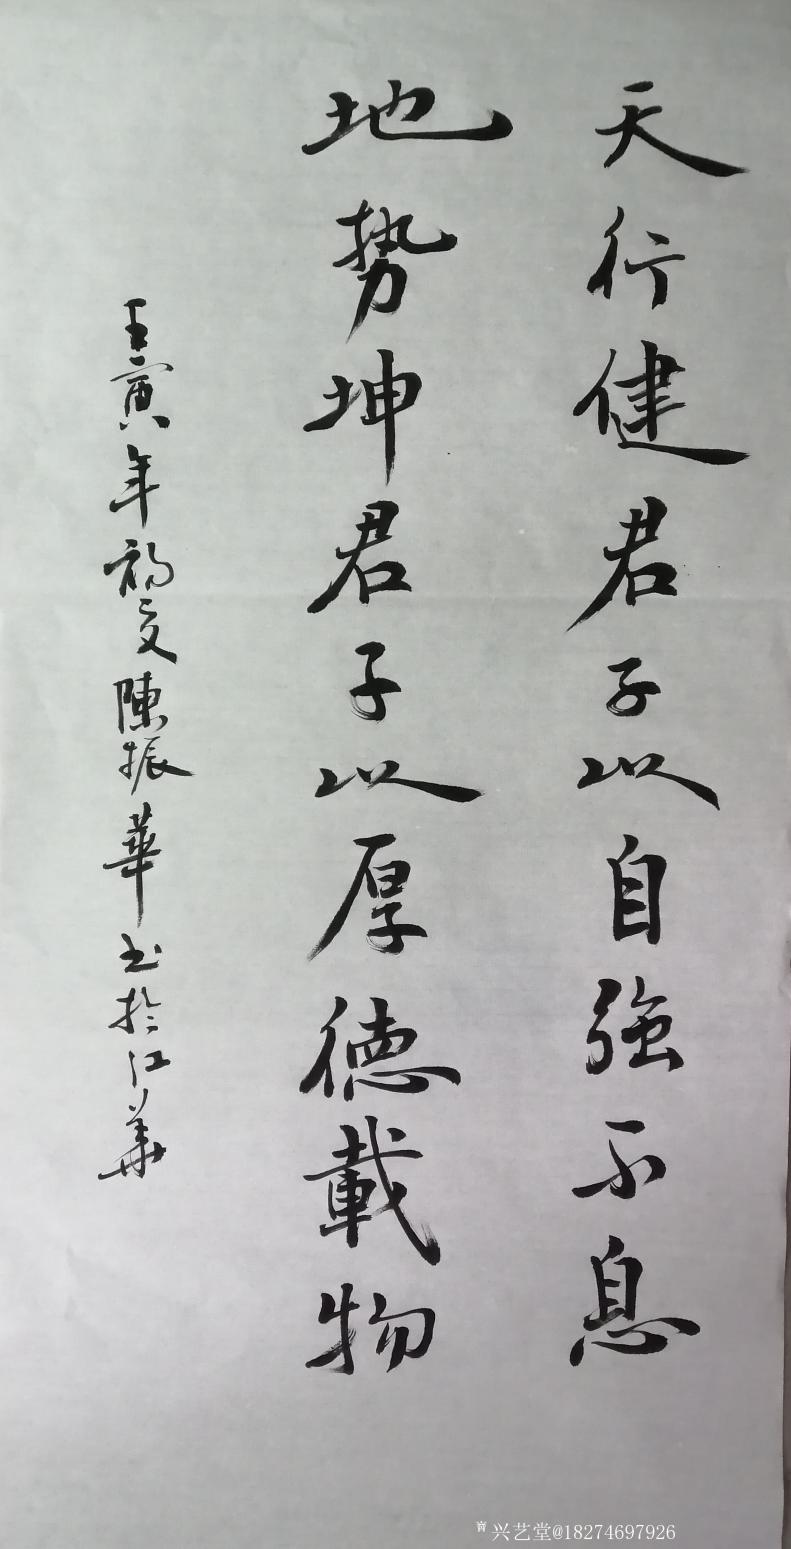 天行健君子以自強不息
地势坤君子以厚德載物
壬寅年初夏陳振華书於江華
兴艺堂@18274697926